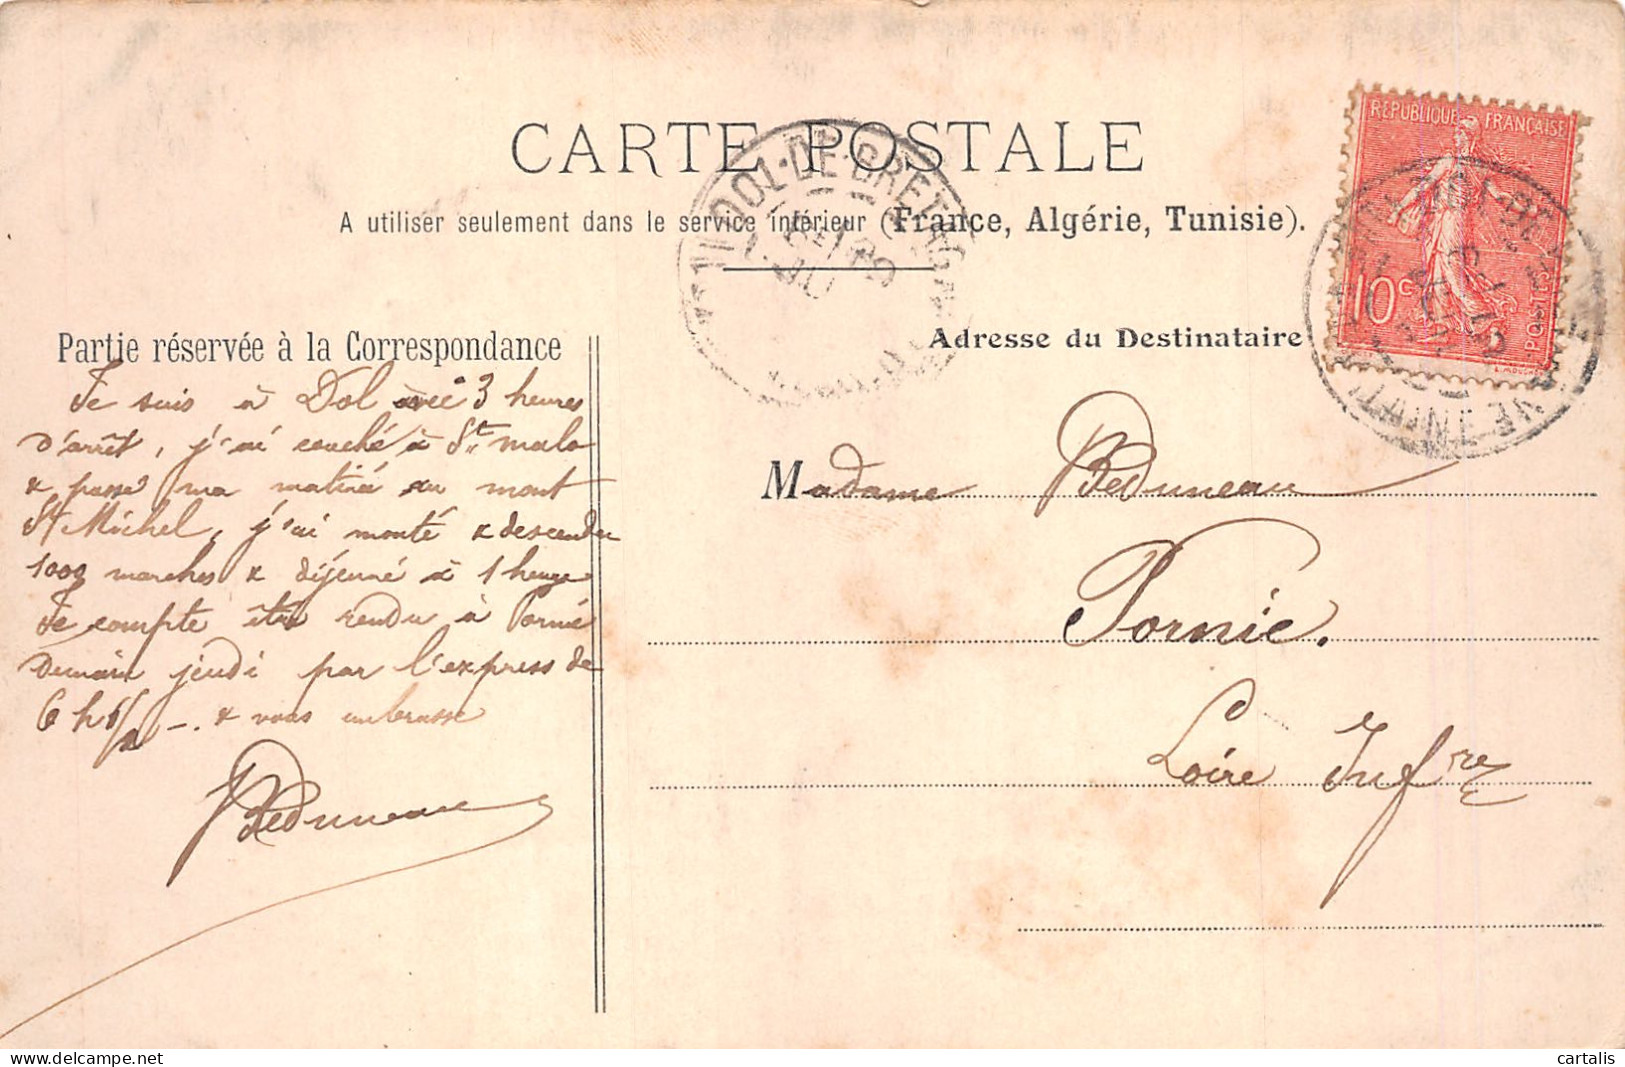 CARTE POSTALE
A utiliser seulement dans le service intérieur (France, Algérie, Tunisie).
REPUBLIQUE FRANÇAISE
10c
POSTES
DOL-DE-BRETAGNE
ILLE-ET-VILAINE
Partie réservée à la Correspondance
Je suis à Dol avec 3 heures
d'arrêt, j'ai couché à St malo
& passé ma matiné au mont
St Michel, j'ai monté & descendu
1000 marches & déjeuné à 1 heure
Je compte être rendu à Pornic
Demain jeudi par l'express de
6 h 1/2 -. & vous embrasse
Beduneau
Adresse du Destinataire
Madame Beduneau
Pornic.
Loire Infre
cartalis